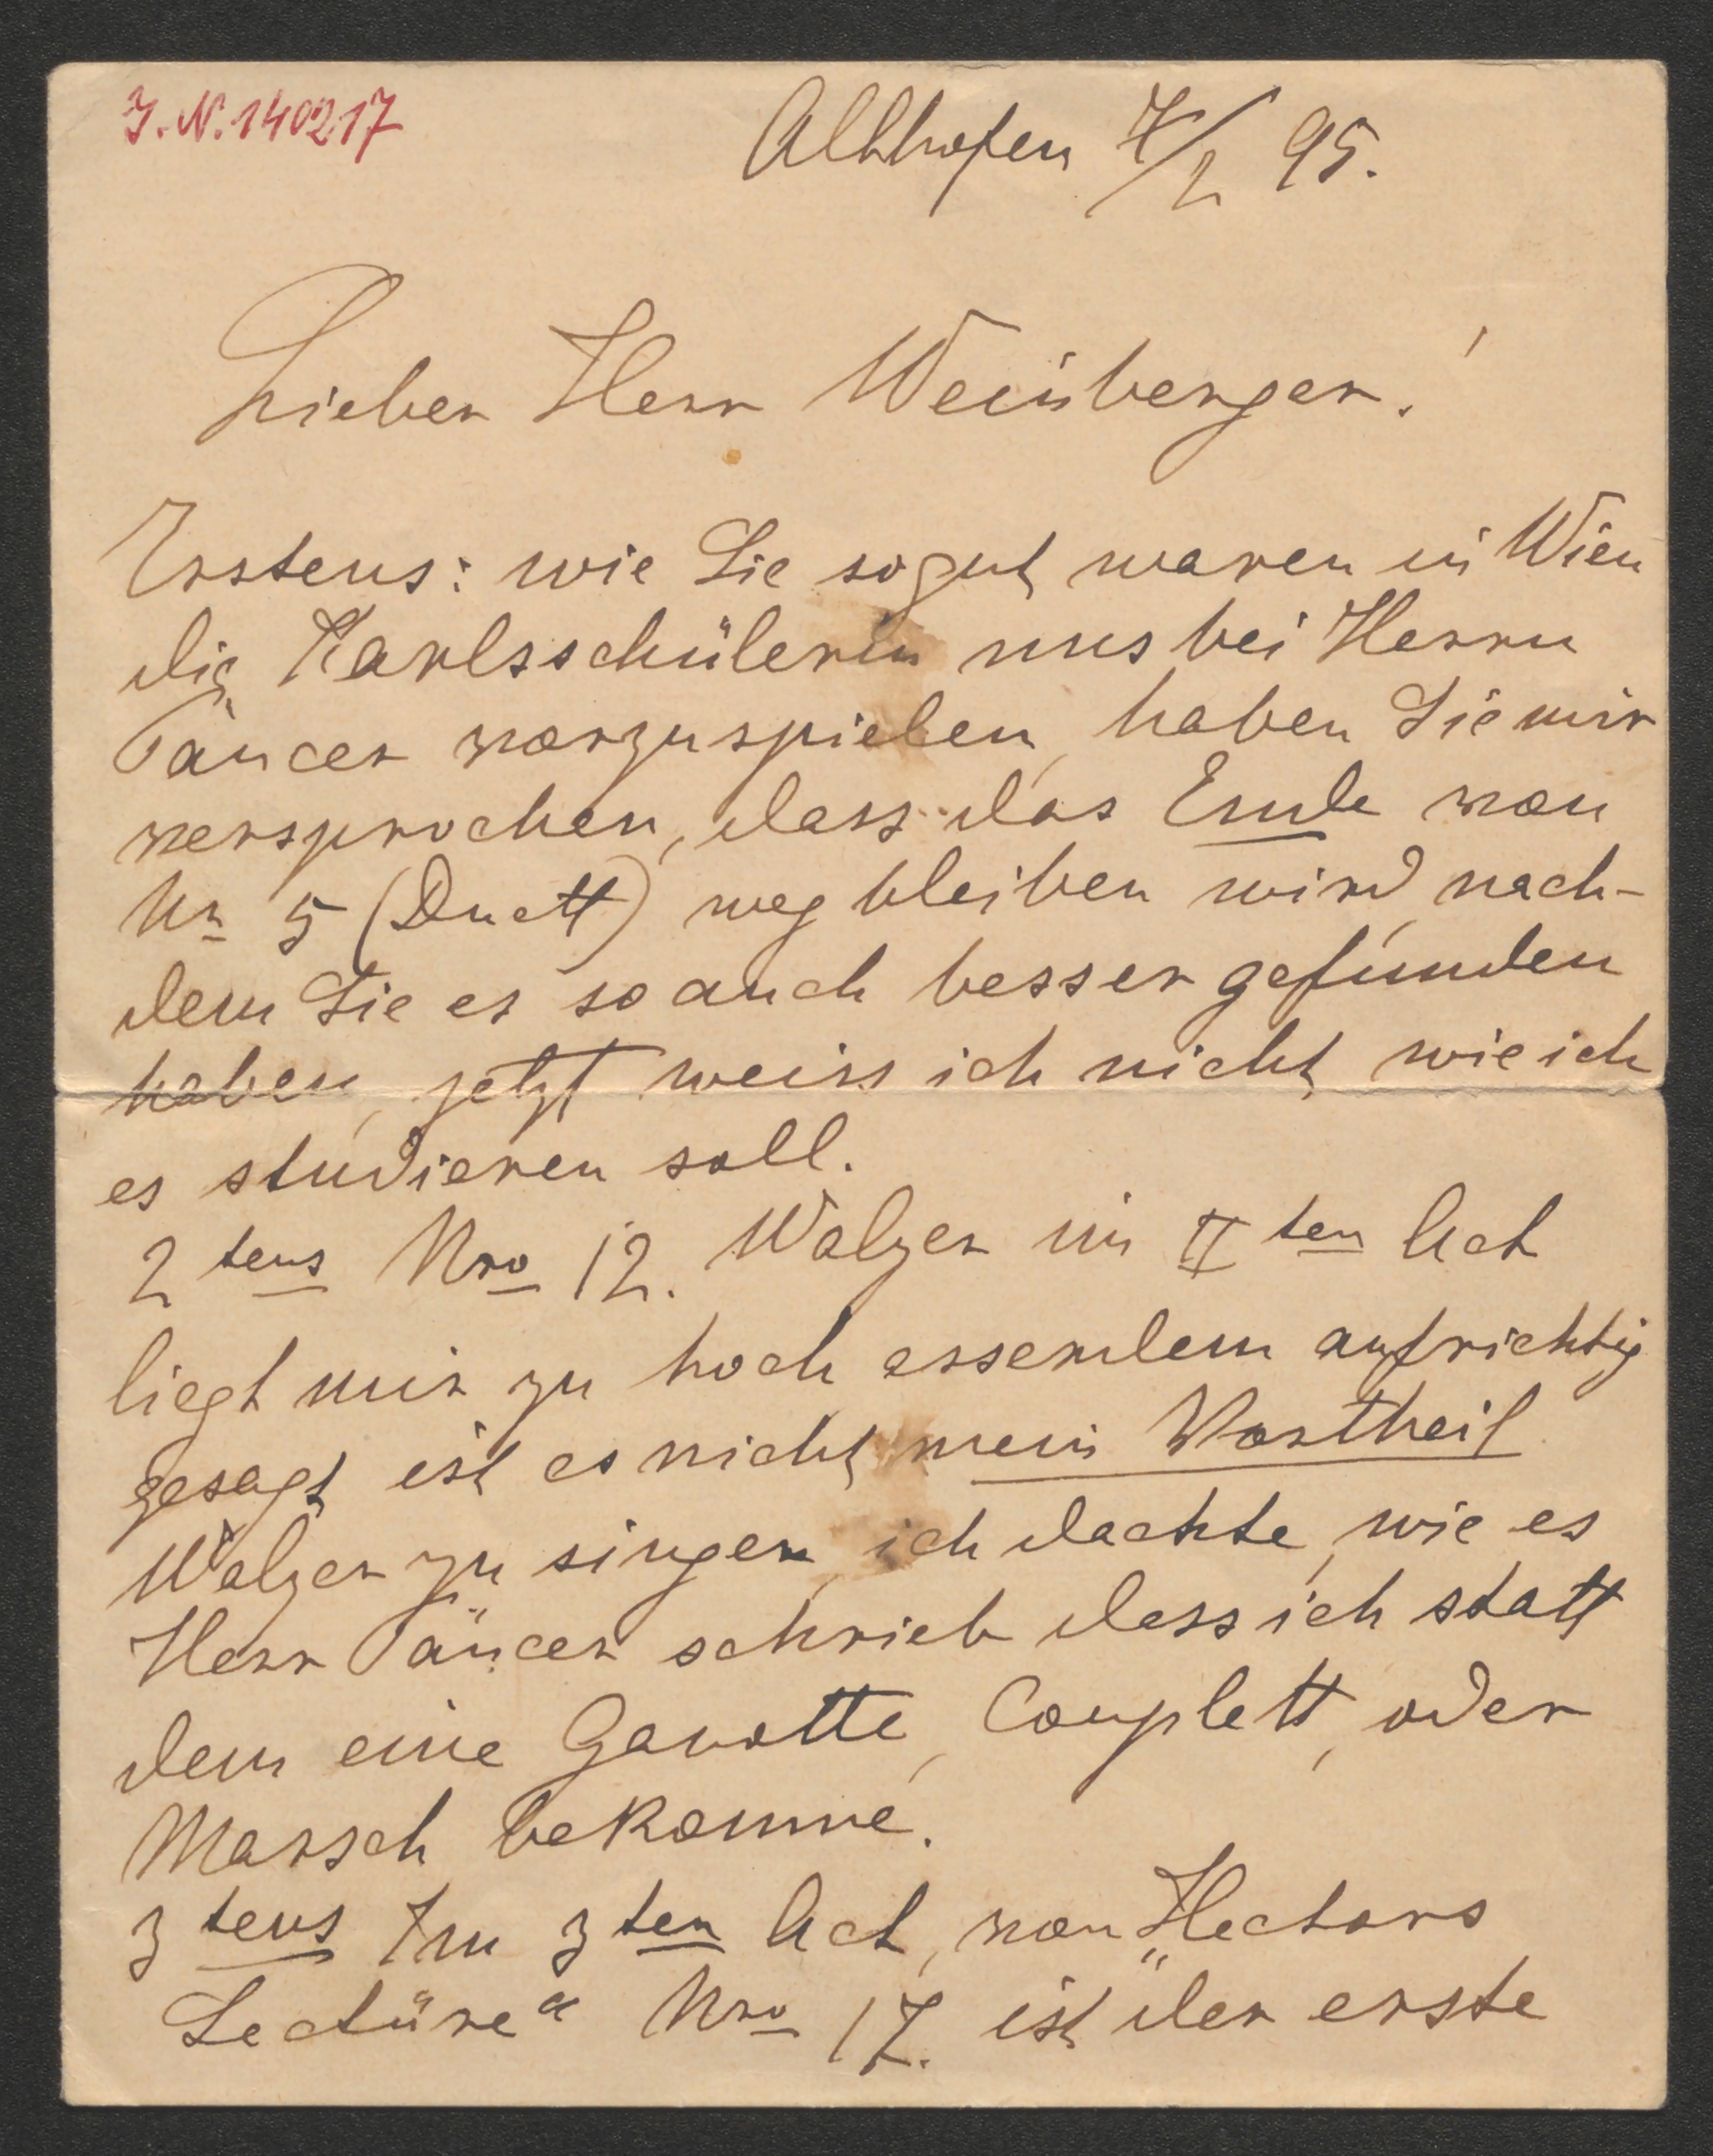 I.N. 140217
Althofen 7/2 95.
Lieber Herr Weinberger!
Erstens: wie Sie so gut waren in Wien
die Karlsschülerin uns bei Herrn
Täncer vorzuspielen, haben Sie mir
versprochen, dass das Ende von
Nr 5 (Duett) weg bleiben wird, nach-
dem Sie es so auch besser gefunden
haben, jetzt weiss ich nicht, wie ich
es studieren soll.
2tens Nro 12. Walzer im IIten Act
liegt mir zu hoch esserdem aufrichtig
gesagt ist es nicht mein Vortheil
Walzer zu singen, ich dachte, wie es
Herr Täncer schrieb dass ich statt
dem eine Gavotte, Couplett, oder
Marsch bekomme.
3tens Im 3ten Act, von „Hectors
Lectüre“ Nro 17. ist der erste